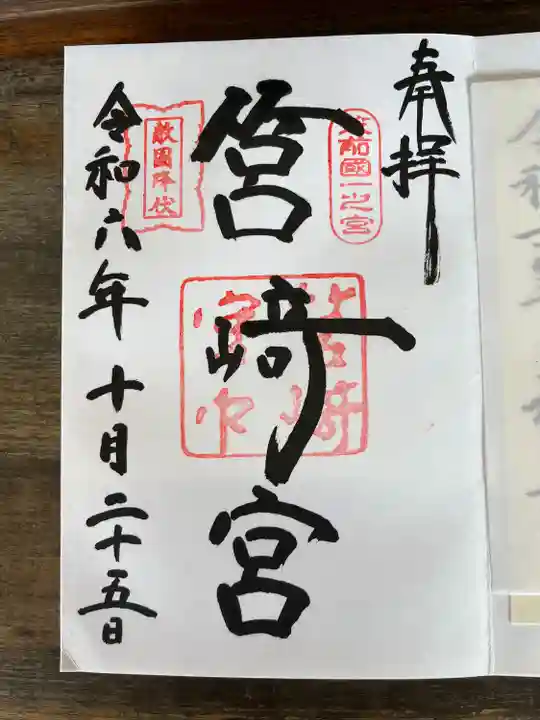 奉拝
筑前國一之宮
筥崎宮
筥崎宮印
敵国降伏
令和六年十月二十五日